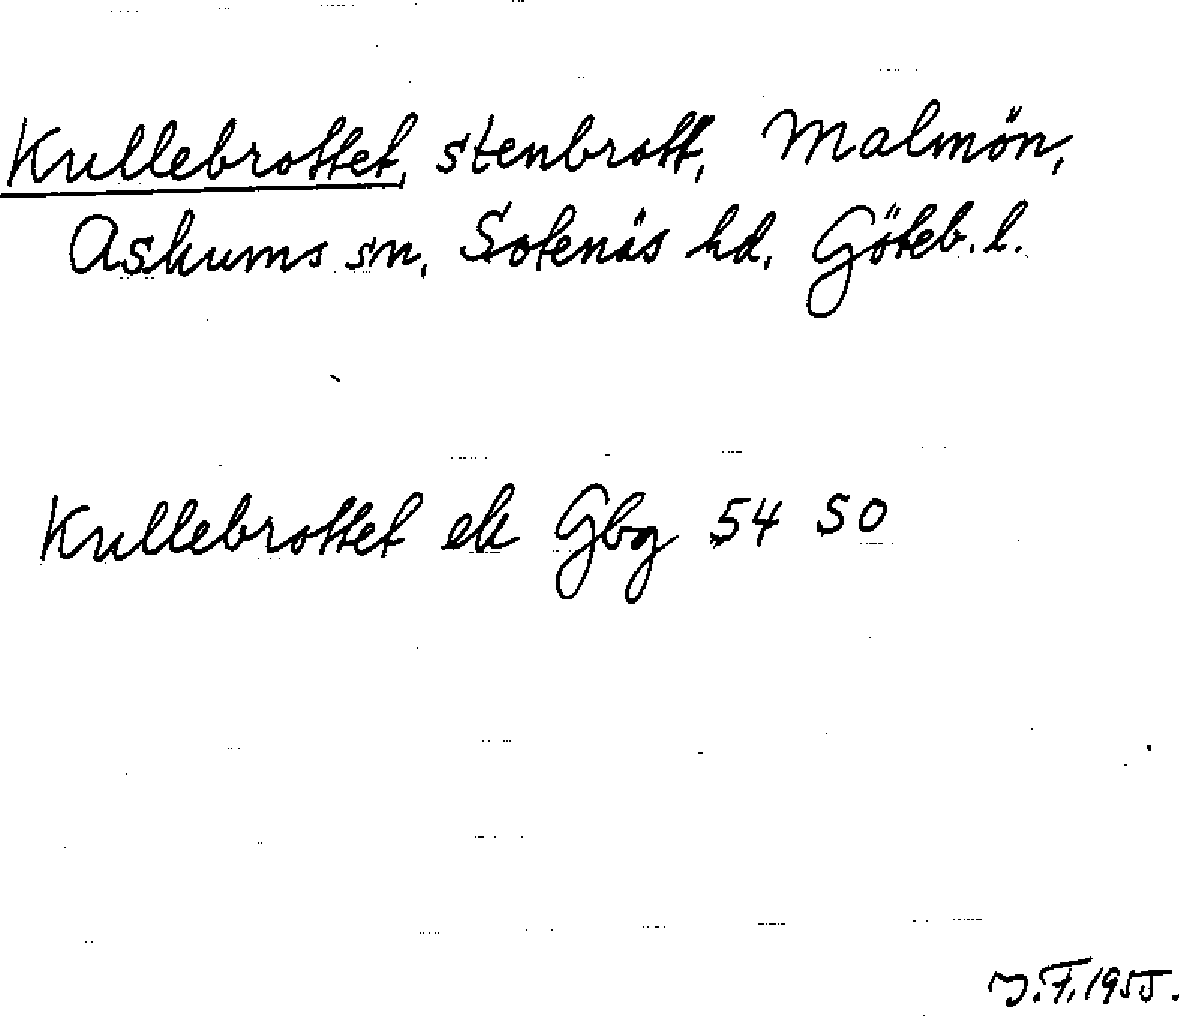 Kullebrottet, stenbrott, Malmön,
Askums sn, Sotenäs hd, Göteb. l.
Kullebrottet ek Gbg 54 SO
J.F. 1955.